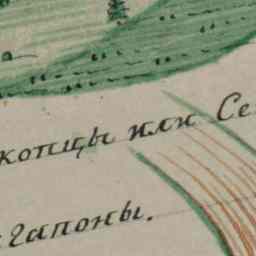 копцы или Се
гапоны.